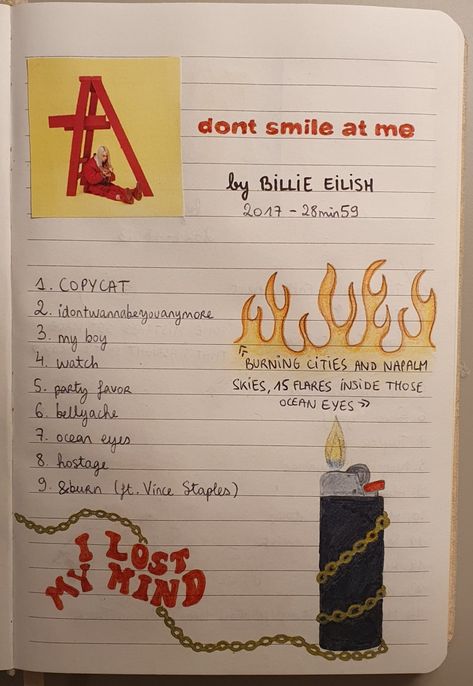 dont smile at me
by BILLIE EILISH
2017 - 28min59
1. COPYCAT
2. idontwannabeyouanymore
3. my boy
4. watch
5. party favor
6. bellyache
7. ocean eyes
8. hostage
9. &burn (ft. Vince Staples)
"BURNING CITIES AND NAPALM
SKIES, 15 FLARES INSIDE THOSE
OCEAN EYES"
I LOST
MY MIND